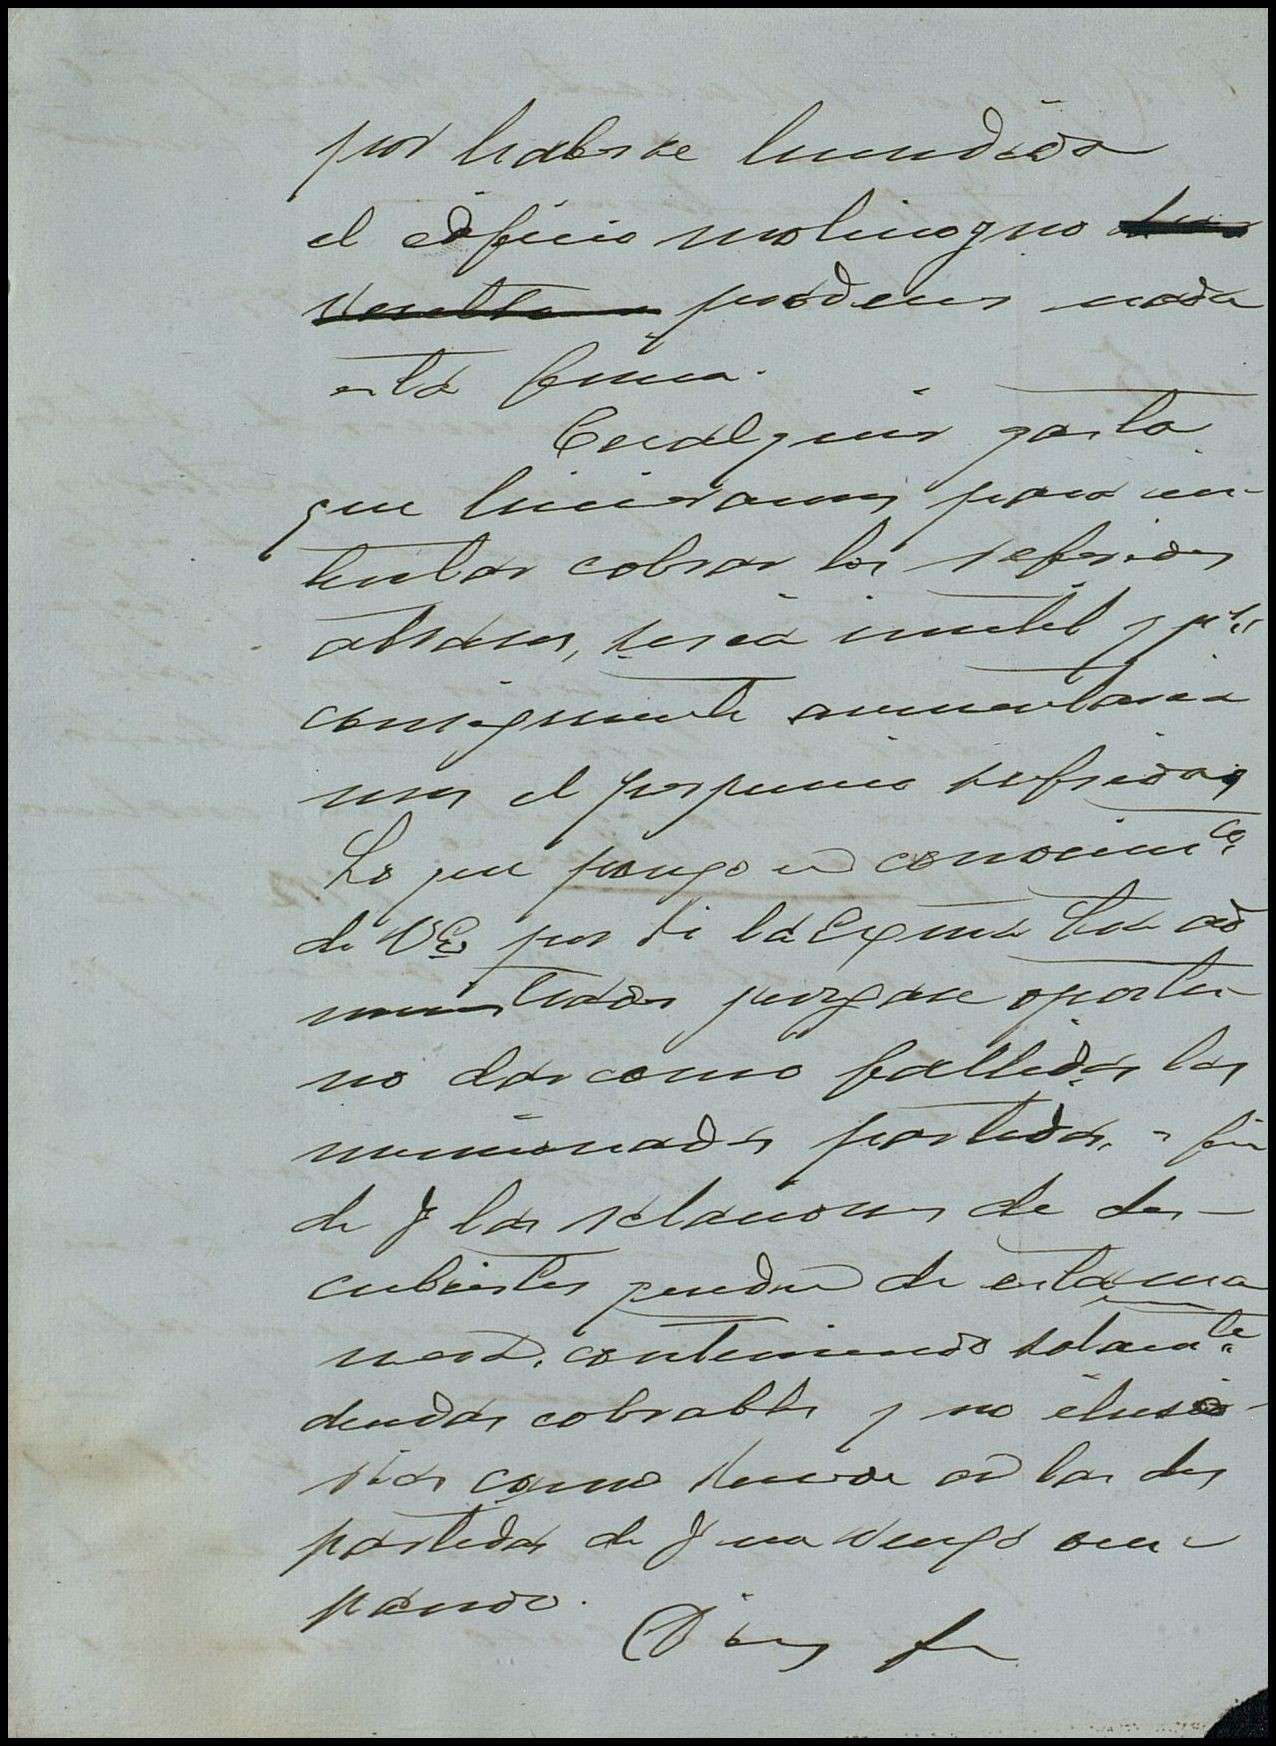 por haberse hundido
el edificio molino q no
produce nada
esta finca.
Cualquier gasto
que hicieramos para in-
tentar cobrar los referidos
atrasos, seria inutil y por
consiguiente aumentaria
mas el perjuicio sufrido
Lo que pongo en conocimto
de V.E. por si la Exma Junta ad
ministrador juzgase oportu-
no dar como fallidas las
mencionadas partidas, a fin
de q las relaciones de des-
cubiertos queden de esta ma
nera, conteniendo solamte
deudas cobrables y no iluso-
rias como sucede en las dos
partidas de q me vengo ocu-
pando.
Dios